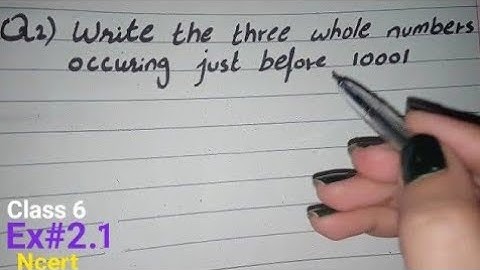 Q2) Write the three whole numbers
occuring just before 10001
Class 6
Ex#2.1
Ncert